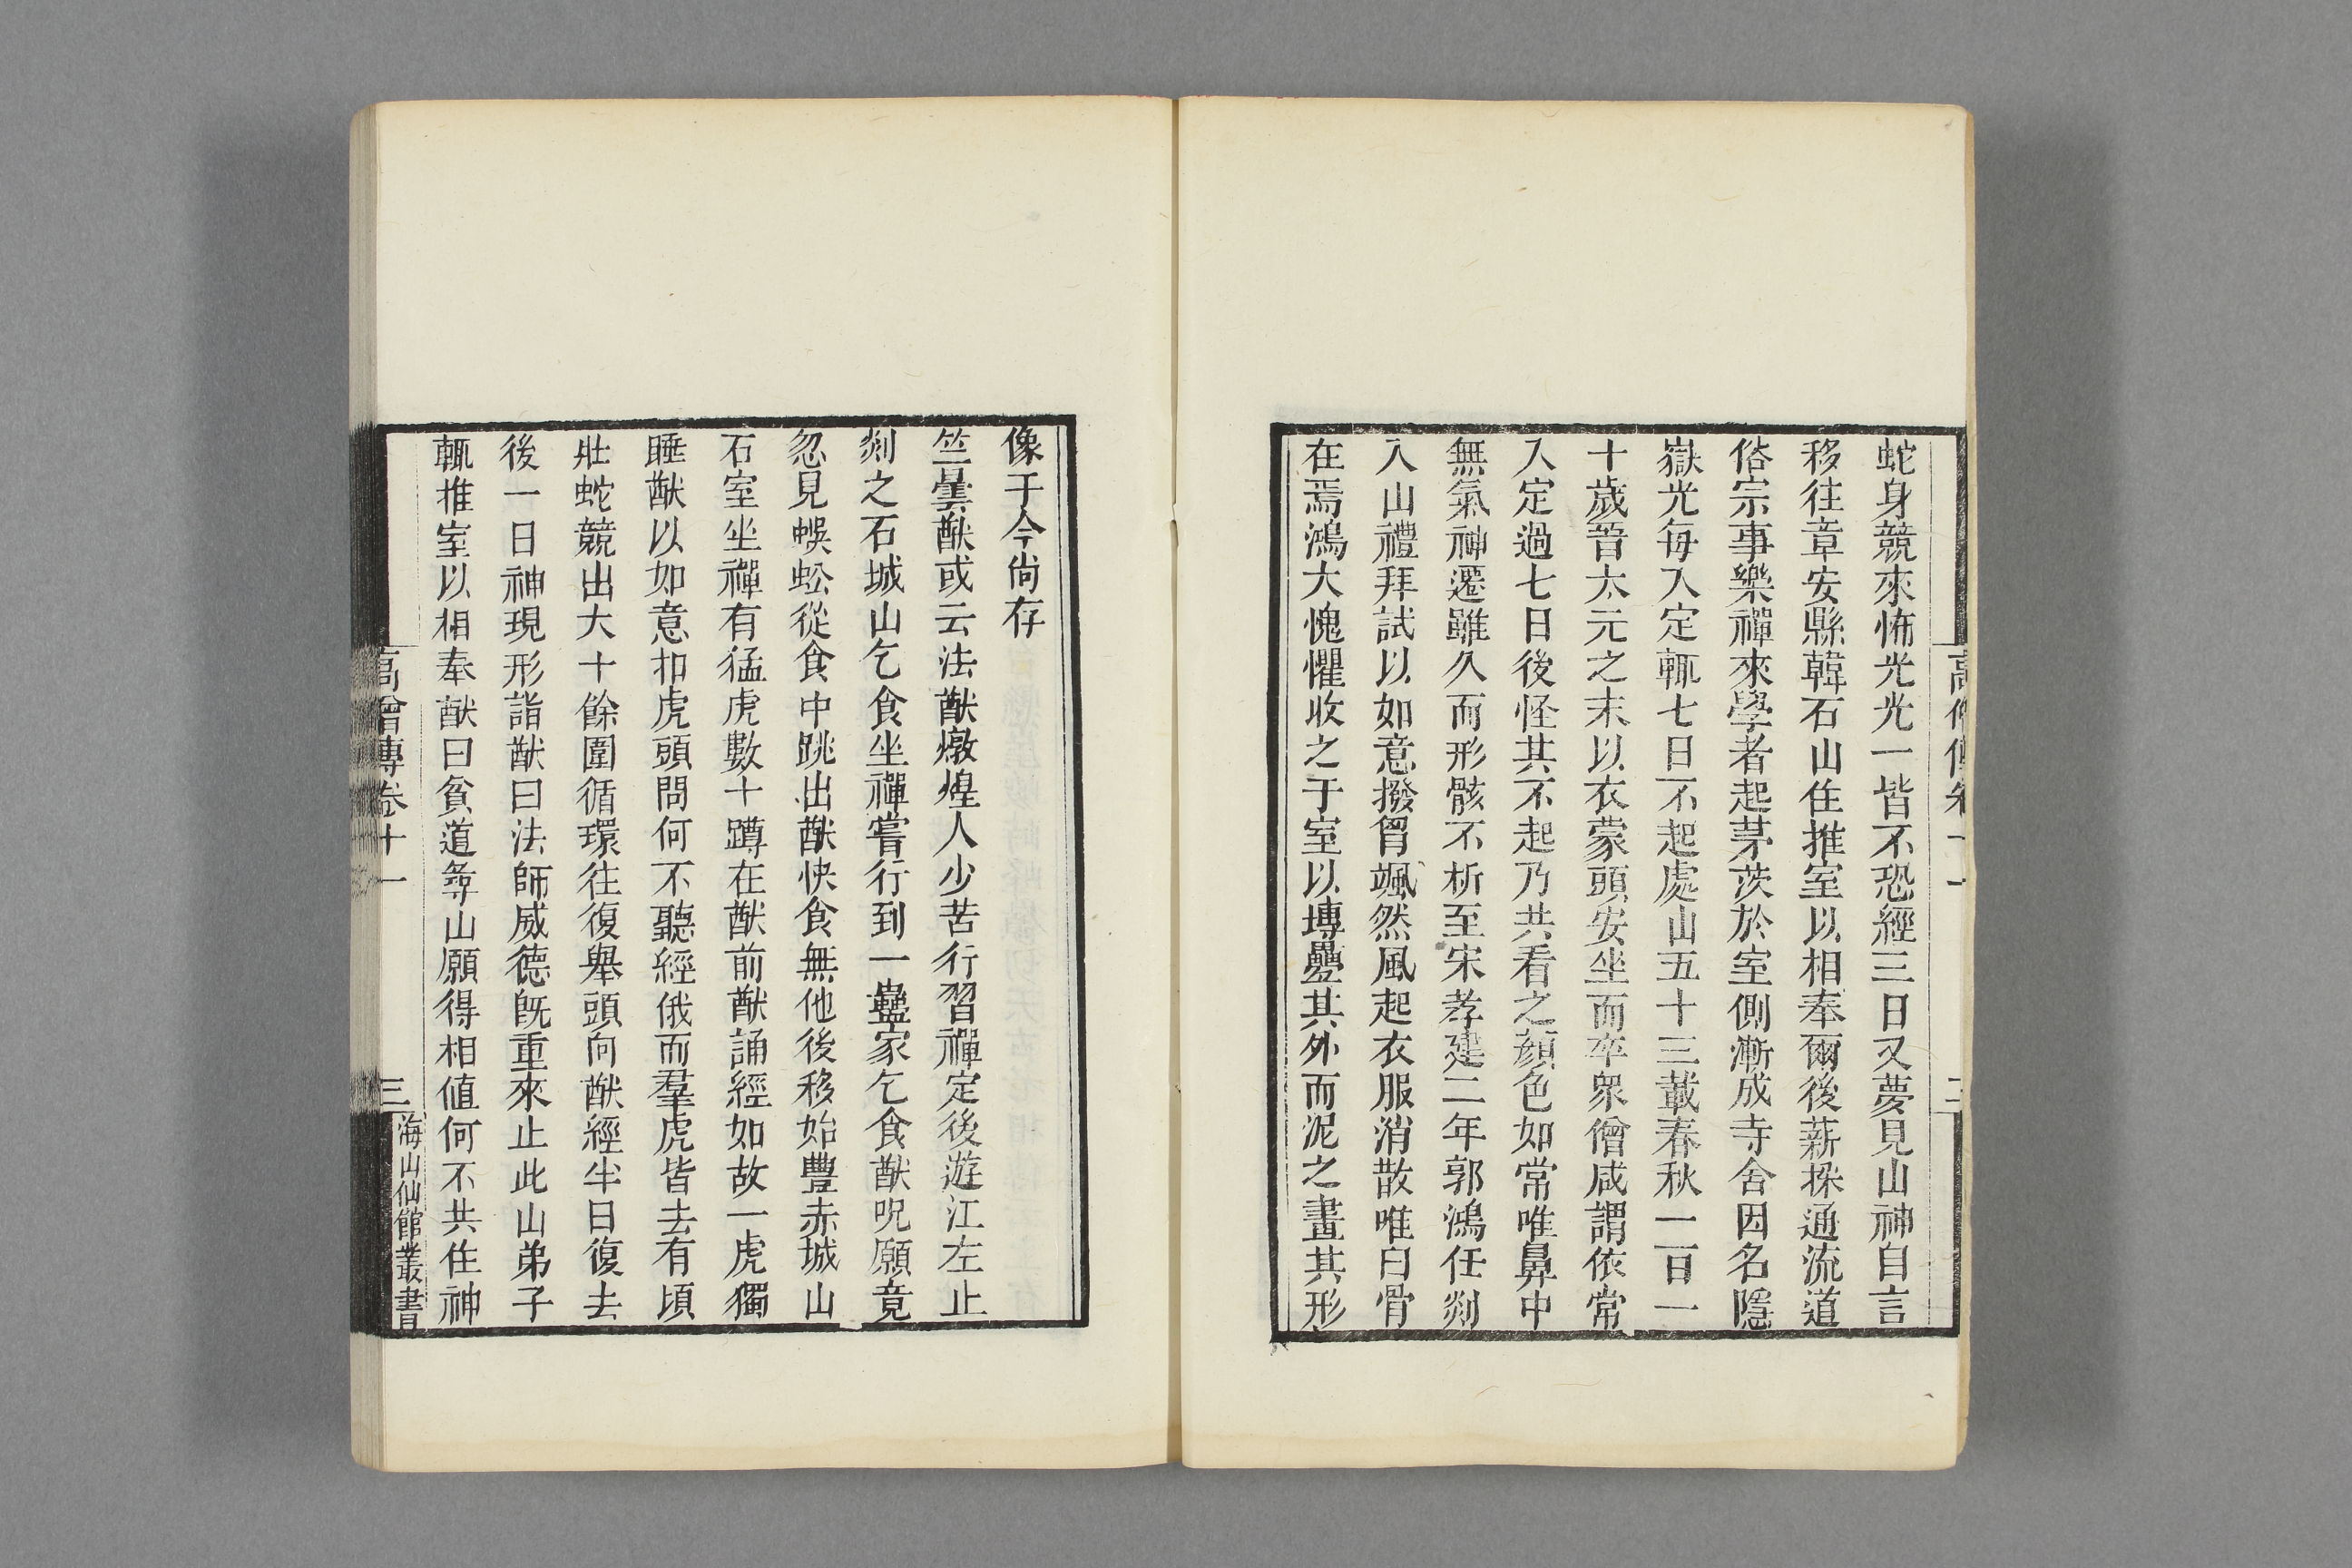 蛇身競來怖光光一皆不恐經三日又夢見山神自言
移往章安縣韓石山住推室以相奉爾後薪採通流道
俗宗事樂禪來學者起茅茨於室側漸成寺舍因名隱
嶽光每入定輒七日不起處山五十三載春秋一百一
十歲晉太元之末以衣蒙頭安坐而卒衆僧咸謂依常
入定過七日後怪其不起乃共看之顔色如常唯鼻中
無氣神遷雖久而形骸不析至宋孝建二年郭鴻任剡
入山禮拜試以如意撥胷颯然風起衣服消散唯白骨
在焉鴻大愧懼收之于室以塼疊其外而泥之畫其形
像于今尙存
竺曇猷或云法猷燉煌人少苦行習禪定後遊江左止
剡之石城山乞食坐禪嘗行到一蠱家乞食猷呪願竟
忽見蜈蚣從食中跳出猷快食無他後移始豐赤城山
石室坐禪有猛虎數十蹲在猷前猷誦經如故一虎獨
睡猷以如意扣虎頭問何不聽經俄而羣虎皆去有頃
壯蛇競出大十餘圍循環往復舉頭向猷經半日復去
後一日神現形詣猷曰法師威德旣重來止此山弟子
輒推室以相奉猷曰貧道尋山願得相値何不共住神
高僧傳卷十一
三
海山仙館叢書